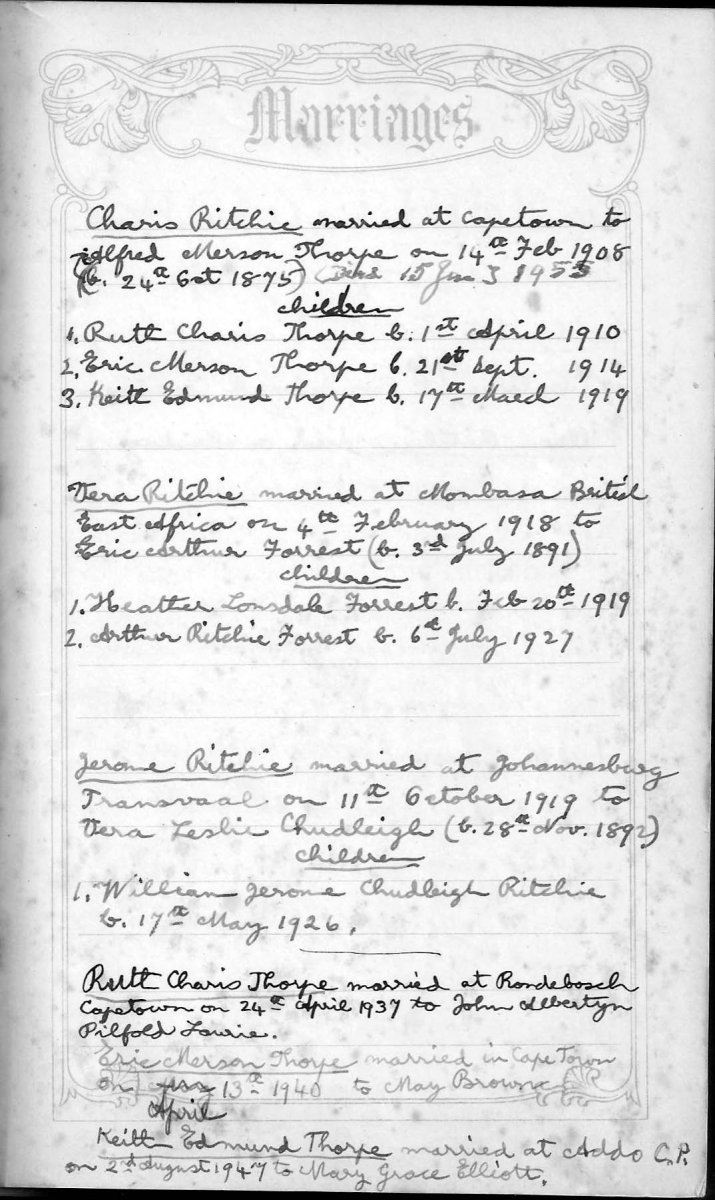 Marriages
Charis Ritchie married at Capetown to
Alfred Merson Thorpe on 14th Feb 1908
(b. 24th Oct 1875) (Died 15 1953
children
1. Ruth Charis Thorpe b. 1st April 1910
2. Eric Merson Thorpe b. 21st Sept. 1914
3. Keith Edmund Thorpe b. 17th March 1919
Vera Ritchie married at Mombasa British
East Africa on 4th February 1918 to
Eric Arthur Forrest (b. 3rd July 1891)
children
1. Heather Lonsdale Forrest b. Feb 20th 1919
2. Arthur Ritchie Forrest b. 6th July 1927
Jerome Ritchie married at Johannesburg
Transvaal on 11th October 1919 to
Vera Leslie Chudleigh (b. 28th Nov. 1892)
children
1. William Jerome Chudleigh Ritchie
b. 17th May 1926.
Ruth Charis Thorpe married at Rondebosch
Capetown on 24th April 1937 to John Albertyn
Pilfold Lawrie.
Eric Merson Thorpe married in Cape Town
on 13th 1940 to May Brown
April
Keith Edmund Thorpe married at Addo C.P.
on 2nd August 1947 to Mary Grace Elliott.